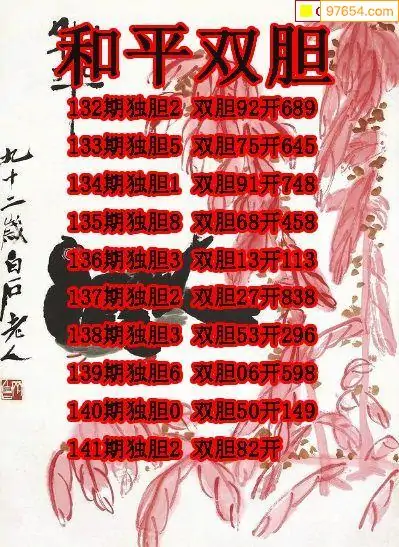 97654.com
和平双胆
132期独胆2 双胆92开689
133期独胆5 双胆75开645
134期独胆1 双胆91开748
135期独胆8 双胆68开458
136期独胆3 双胆13开113
137期独胆2 双胆27开838
138期独胆3 双胆53开296
139期独胆6 双胆06开598
140期独胆0 双胆50开149
141期独胆2 双胆82开
九十二岁白石老人